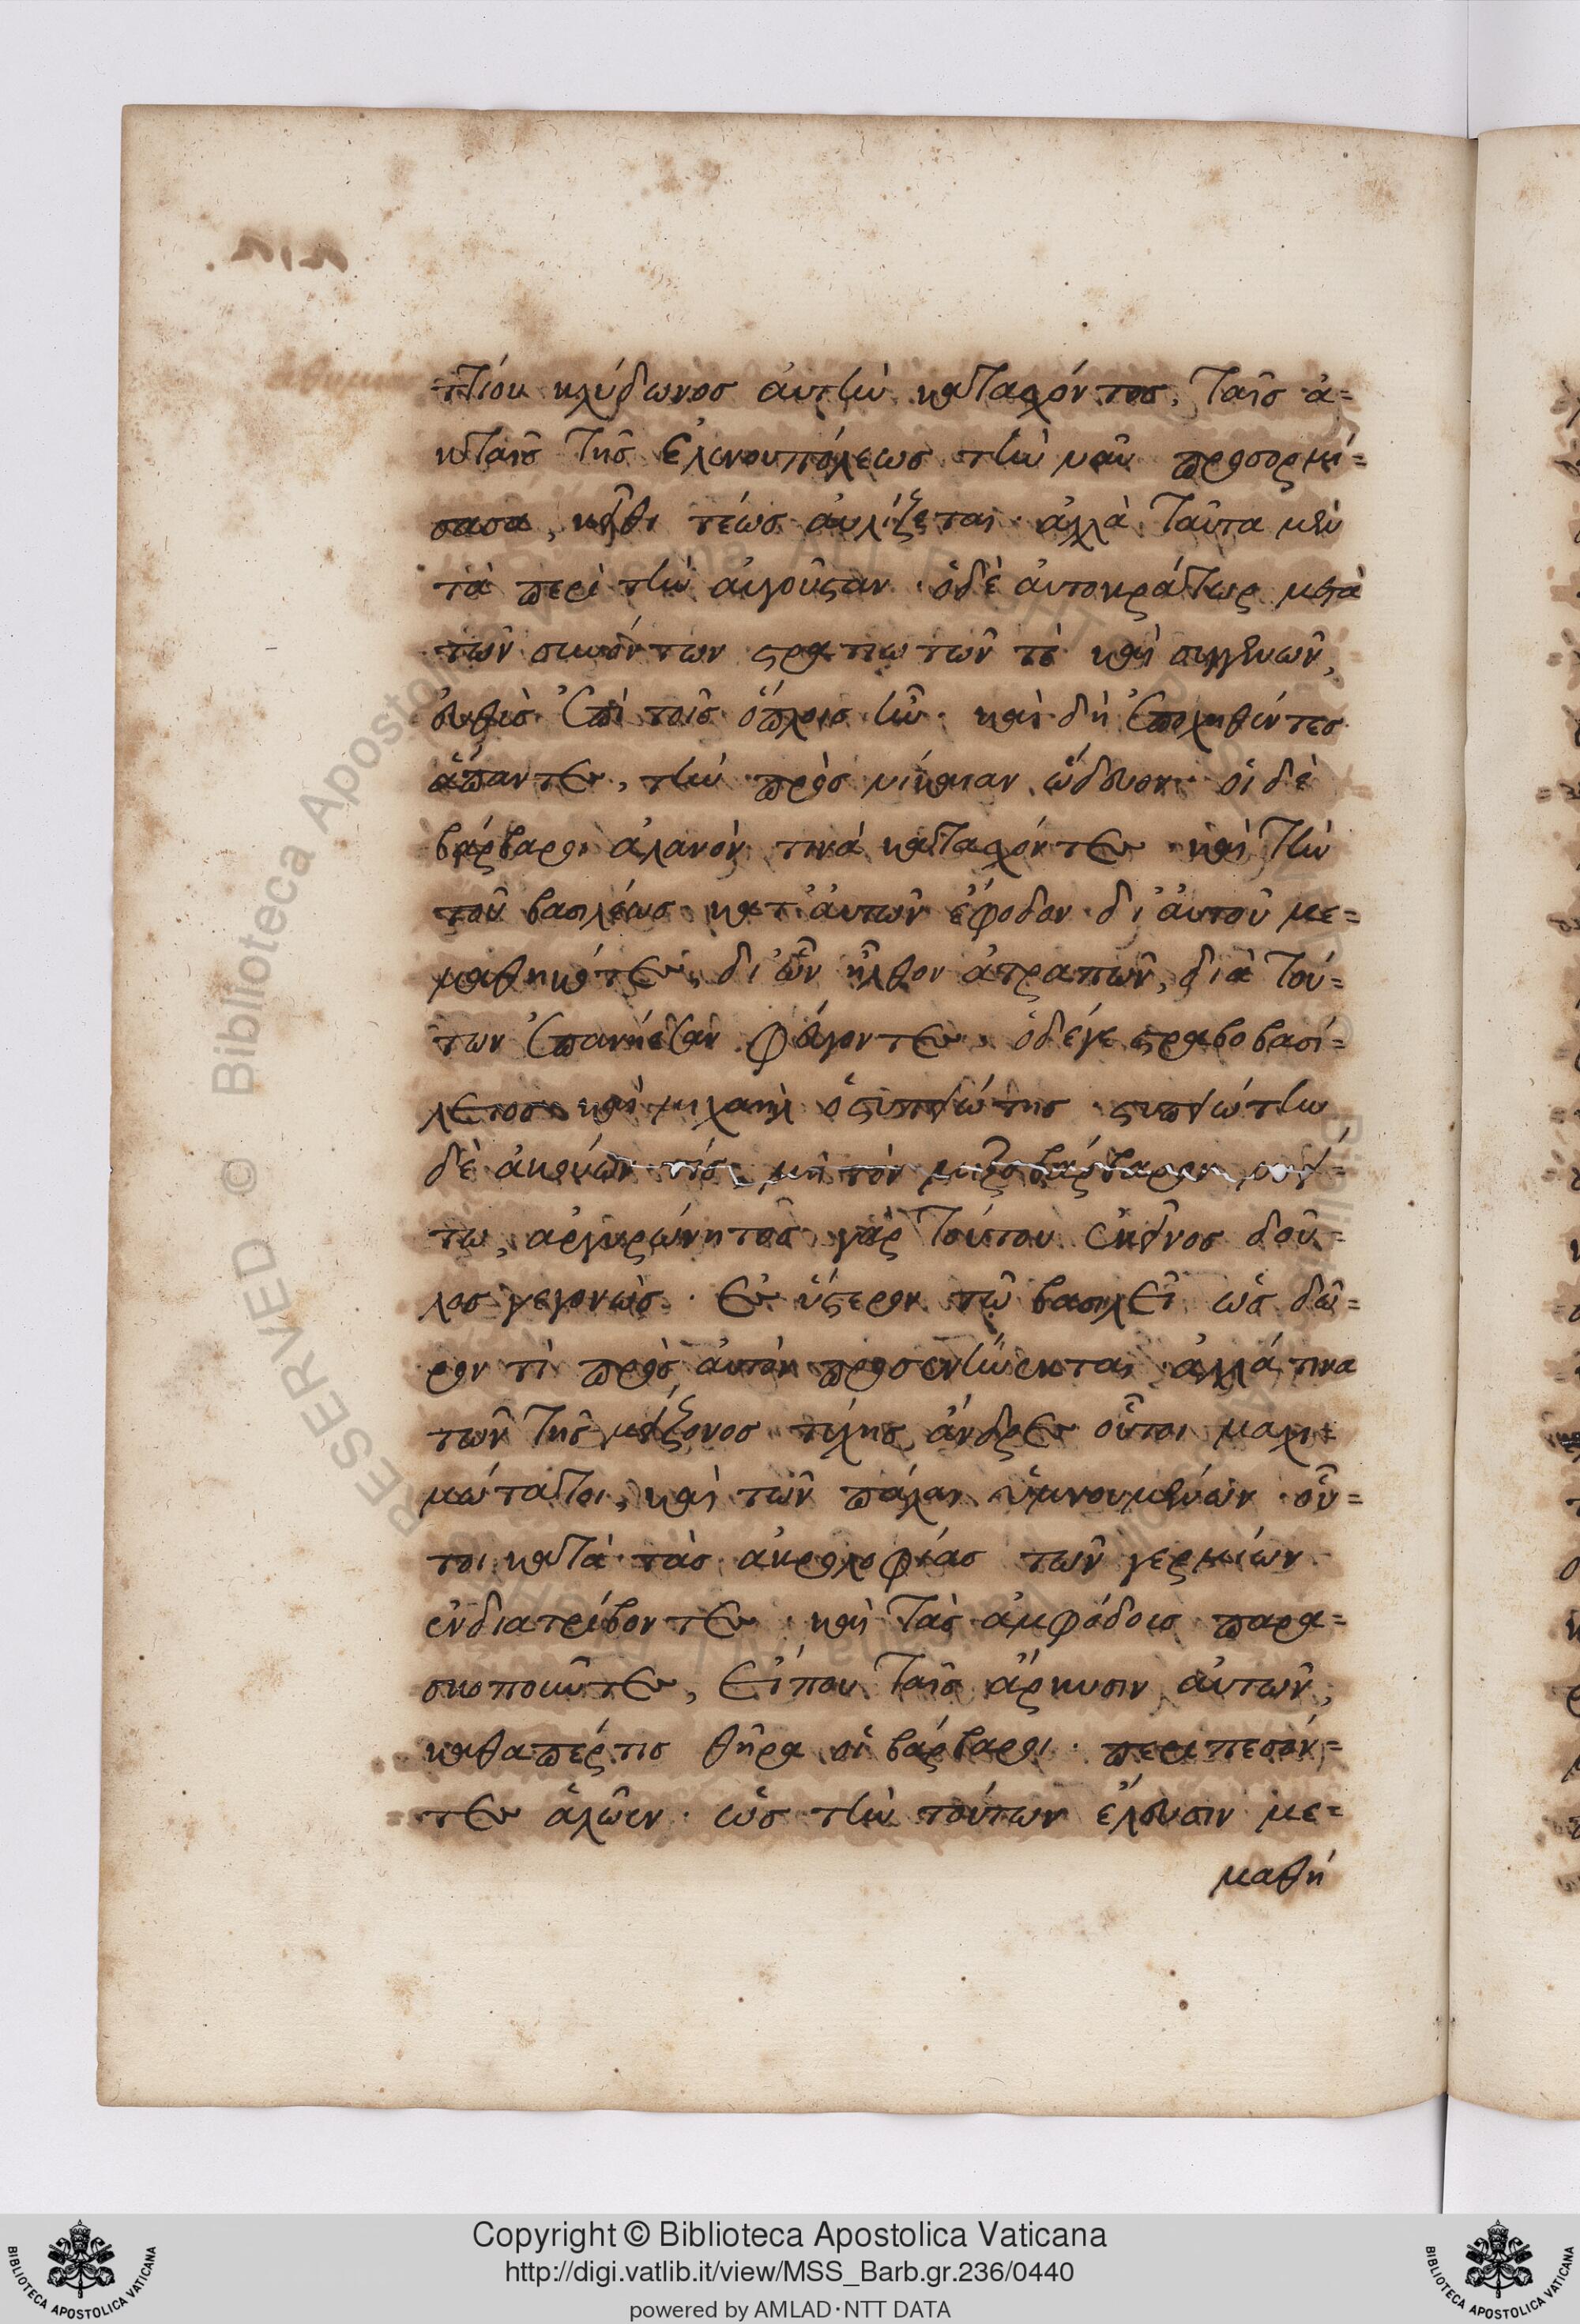 ντίου κλύδωνος αὐτὴν κατασχόντος, ταῖς ἀ=
κταῖς τῆς ἑλενουπόλεως τὴν ναῦν προσορμή=
σασα, κεῖθι τέως αὐλίζεται· ἀλλὰ ταῦτα μὲν
τὰ περὶ τὴν αὐγοῦσταν· ὁ δὲ αὐτοκράτωρ μετὰ
τῶν συνόντων στρατιωτῶν τὲ καὶ συγγενῶν,
εὐθὺς ἐπὶ τοῖς ὅπλοις ἦν· καὶ δὴ ἐποχηθέντες
ἅπαντες, τὴν πρὸς νίκαιαν ὥδευον· οἱ δὲ
βάρβαροι ἀλανόν τινά κατασχόντες καὶ τὴν
τοῦ βασιλέως κατ' αὐτῶν ἔφοδον δι' αὐτοῦ με=
μαθηκότες, δι' ὧν ἦλθον ἀτραπῶν, διὰ τού=
των ἐπανήεσαν φεύγοντες, ὁ δέ γε στραβοβασί=
λειος καὶ μιχαὴλ ὁ στυπειώτης στυπειώτην
δὲ ἀκούων τίς, μὴ τὸν μιξοβάρβαρον νοεί=
τω, ἀργυρώνητος γὰρ τούτου ἐκεῖνος δοῦ=
λος γεγονὼς· ἐς ὕστερον τῷ βασιλεῖ ὡς δῶ=
ρον τὶ πρὸς αὐτὸν προσενήνεκται ἀλλά τινα
τῶν τῆς μείζονος τύχης, ἄνδρες οὗτοι μαχι=
μώτατοι, καὶ τῶν πάλαι ὑμνουμένων οὗ=
τοι κατὰ τὰς ἀκρολοφίας τῶν γερμίων
ἐνδιατρίβοντες, καὶ τὰς ἀμφόδοις παρα=
σκοποῦντες, εἴπου ταῖς ἄρκυσιν αὐτῶν,
καθαπέρ τις θῆρα οἱ βάρβαροι περιπεσόν=
τες ἁλῶεν· ὡς τὴν τούτων ἔλευσιν με=
μαθή
Copyright © Biblioteca Apostolica Vaticana
http://digi.vatlib.it/view/MSS_Barb.gr.236/0440
powered by AMLAD·NTT DATA
BIBLIOTECA APOSTOLICA VATICANA
BIBLIOTECA APOSTOLICA VATICANA